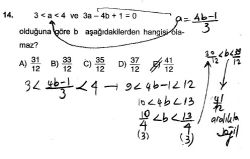 14. 3 < a < 4 ve 3a – 4b + 1 = 0
a = 4b-1 / 3
olduğuna göre b aşağıdakilerden hangisi ola-
maz?
A) 31/12 B) 33/12 C) 35/12 D) 37/12 E) 41/12
3 < 4b-1 / 3 < 4 → 9 < 4b-1 < 12
10 < 4b < 13
10/4 < b < 13/4
(3) (3)
30/12 < b < 39/12
41/12
aralıkta
değil